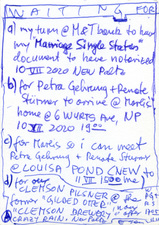 WAITING FOR
a) my turn @ M&T bank to have
my "Marriage Single Status"
document to have notorized
10 VII 2020 NEW Paltz
b) for Petra Gehrung + Renate
Sturmer to arrive @
home @ 6 WURTS AVE, NP
10 VII 2020 1900
c) for so i can meet
Petra Gehrung + Renate Sturmer
@ LOUISA POND (NEW to
d) for our 11 VII me)
"CLEMSON PILSNER @ the
former "GILDED OTTER"
"CLEMSON BREWERY
CRAZY RAIN. New Paltz